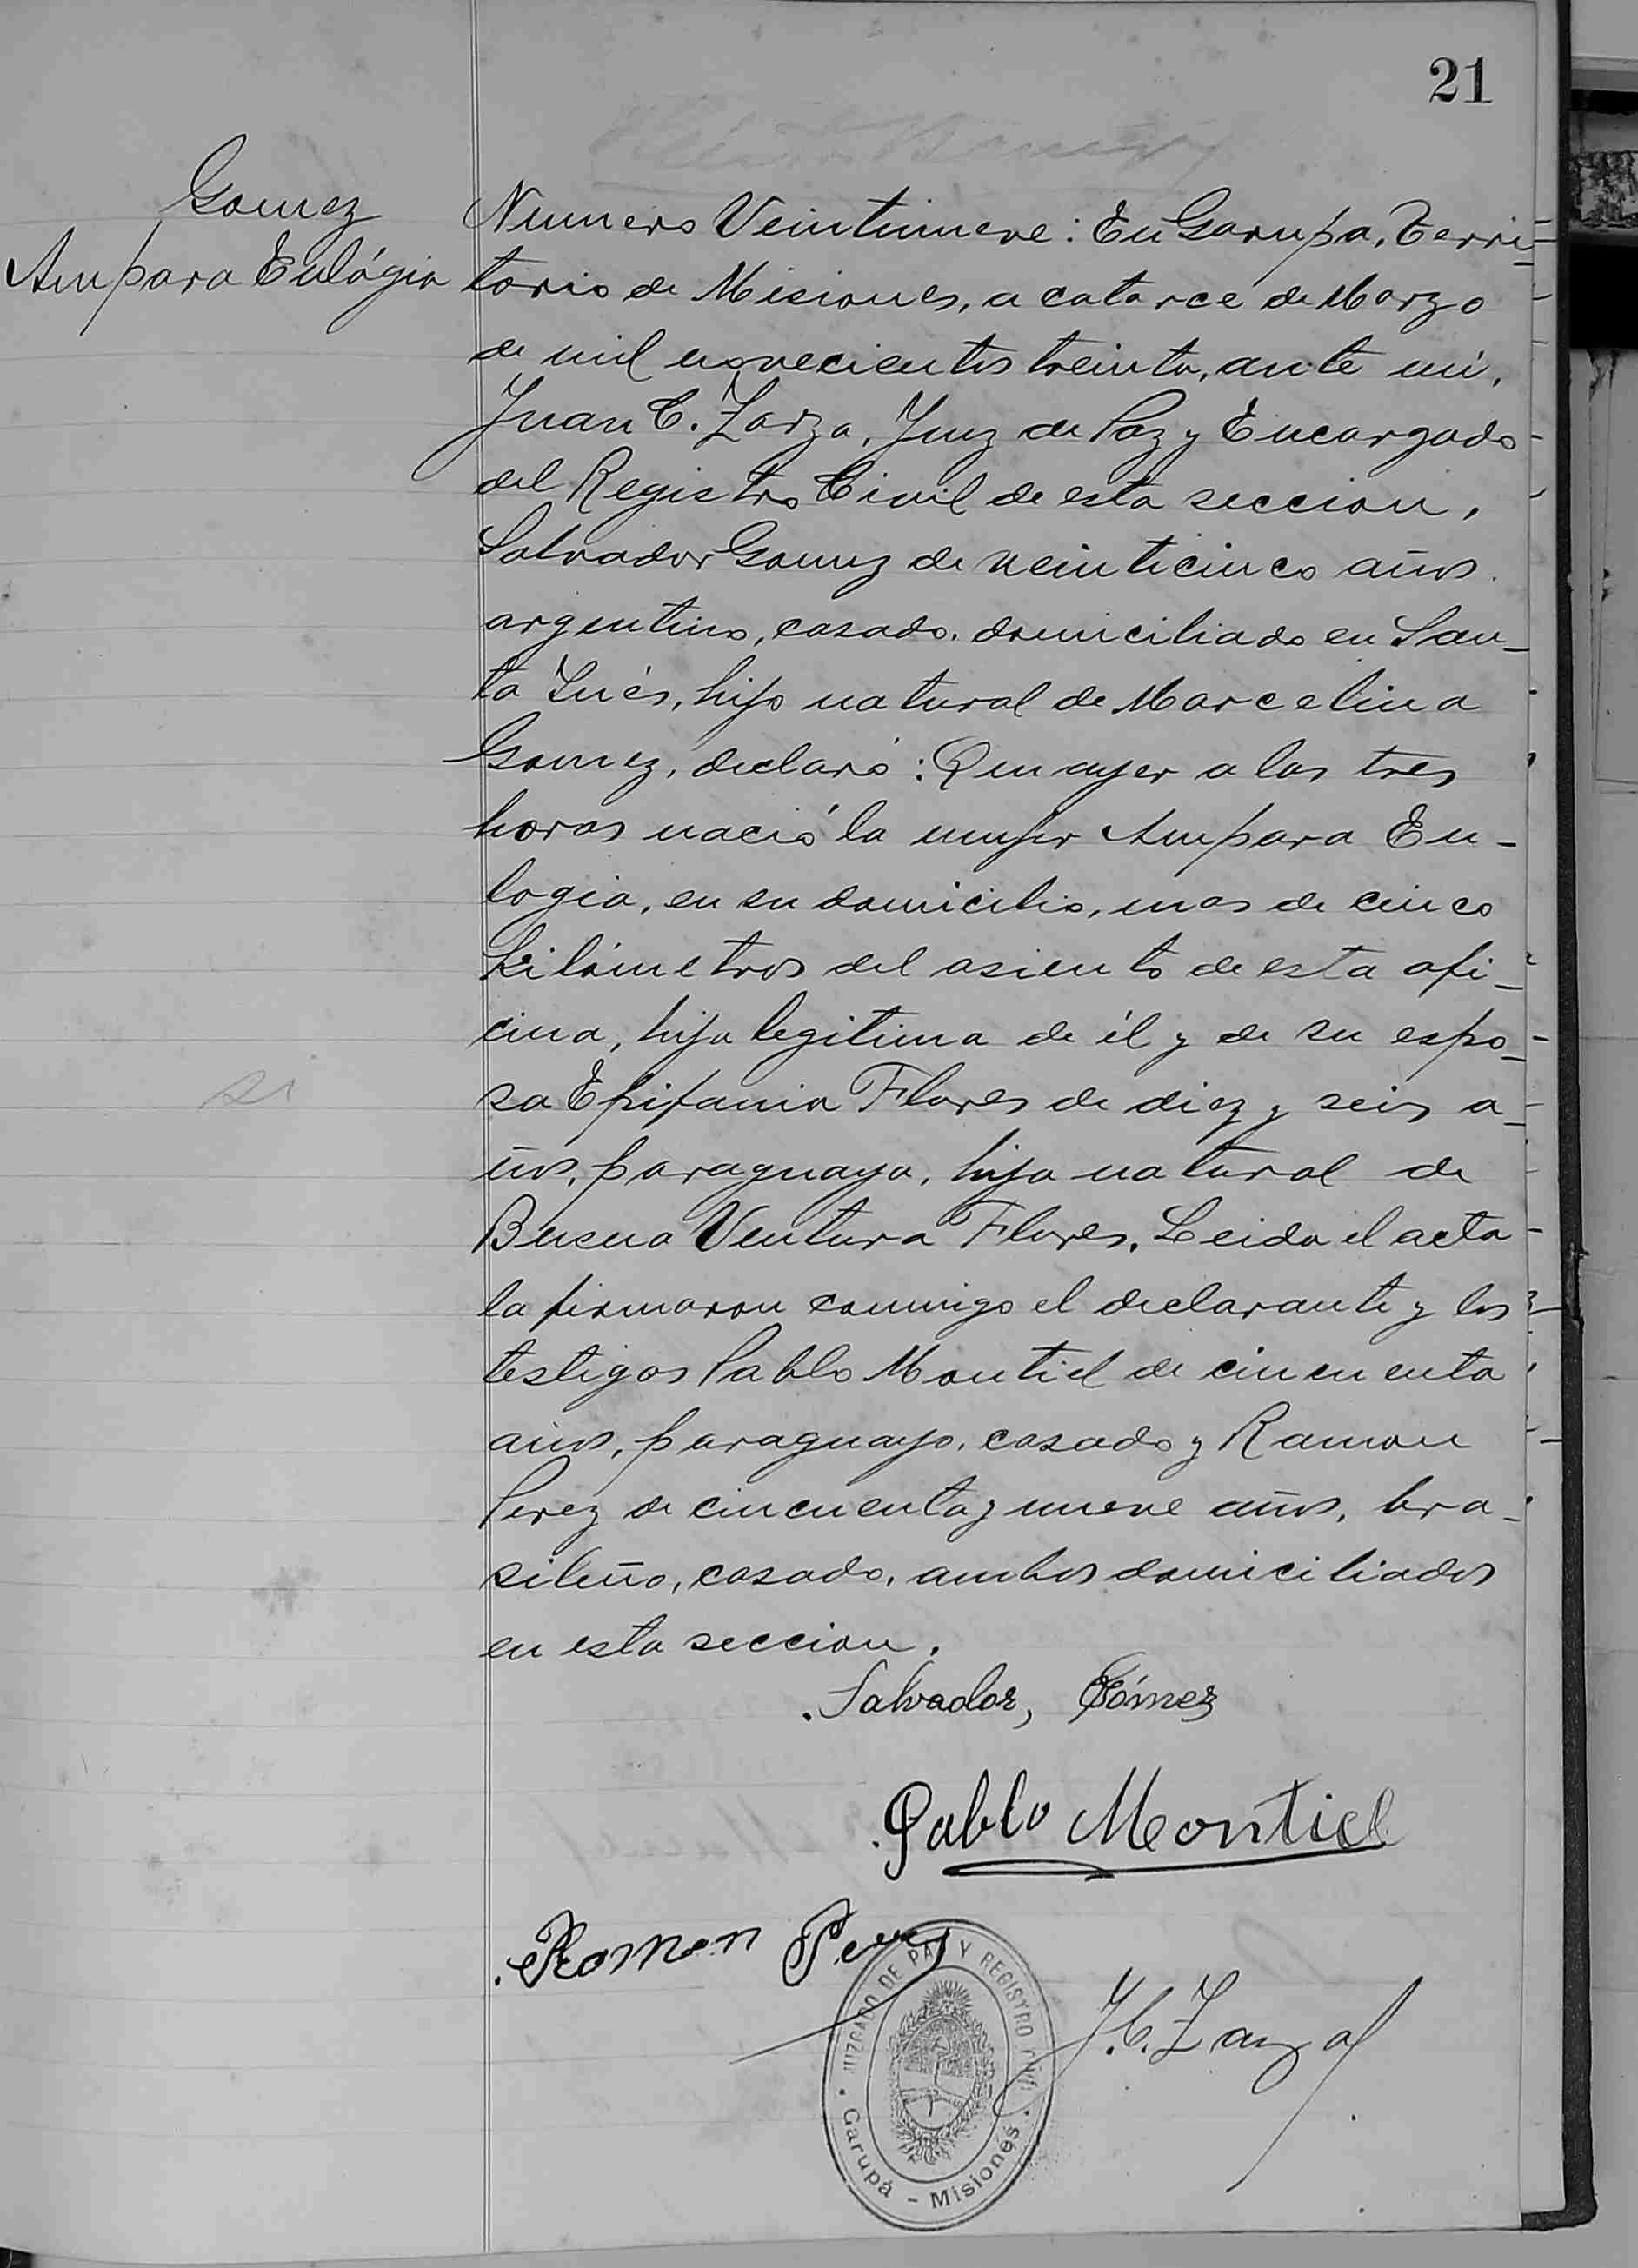 21
Gomez
Ampara Eulógia
Numero Veintinueve: En Garupa, Terri-
torio de Misiones, a catorce de Marzo
de mil novecientos treinta, ante mí,
Juan C. Zarza, Juez de Paz y Encargado
del Registro Civil de esta seccion,
Salvador Gomez de veinticinco años
argentino, casado, domiciliado en San-
ta Inés, hijo natural de Marcelina
Gomez, declaró: Que ayer a las tres
horas nació la mujer Ampara Eu-
logia, en su domicilio, mas de cinco
kilómetros del asiento de esta ofi-
cina, hija legitima de él y de su espo-
sa Epifania Flores de diez y seis a-
ños, paraguaya, hija natural de
Buena Ventura Flores. Leida el acta
la firmaron conmigo el declarante y los
testigos Pablo Montiel de cincuenta
años, paraguayo, casado y Ramon
Perez de cincuenta y nueve años, bra-
sileño, casado, ambos domiciliados
en esta seccion.
Salvador, Gómez
Pablo Montiel
Ramon Perez
J. C. Zarza
JUZGADO DE PAZ Y REGISTRO CIVIL
Garupá - Misiones